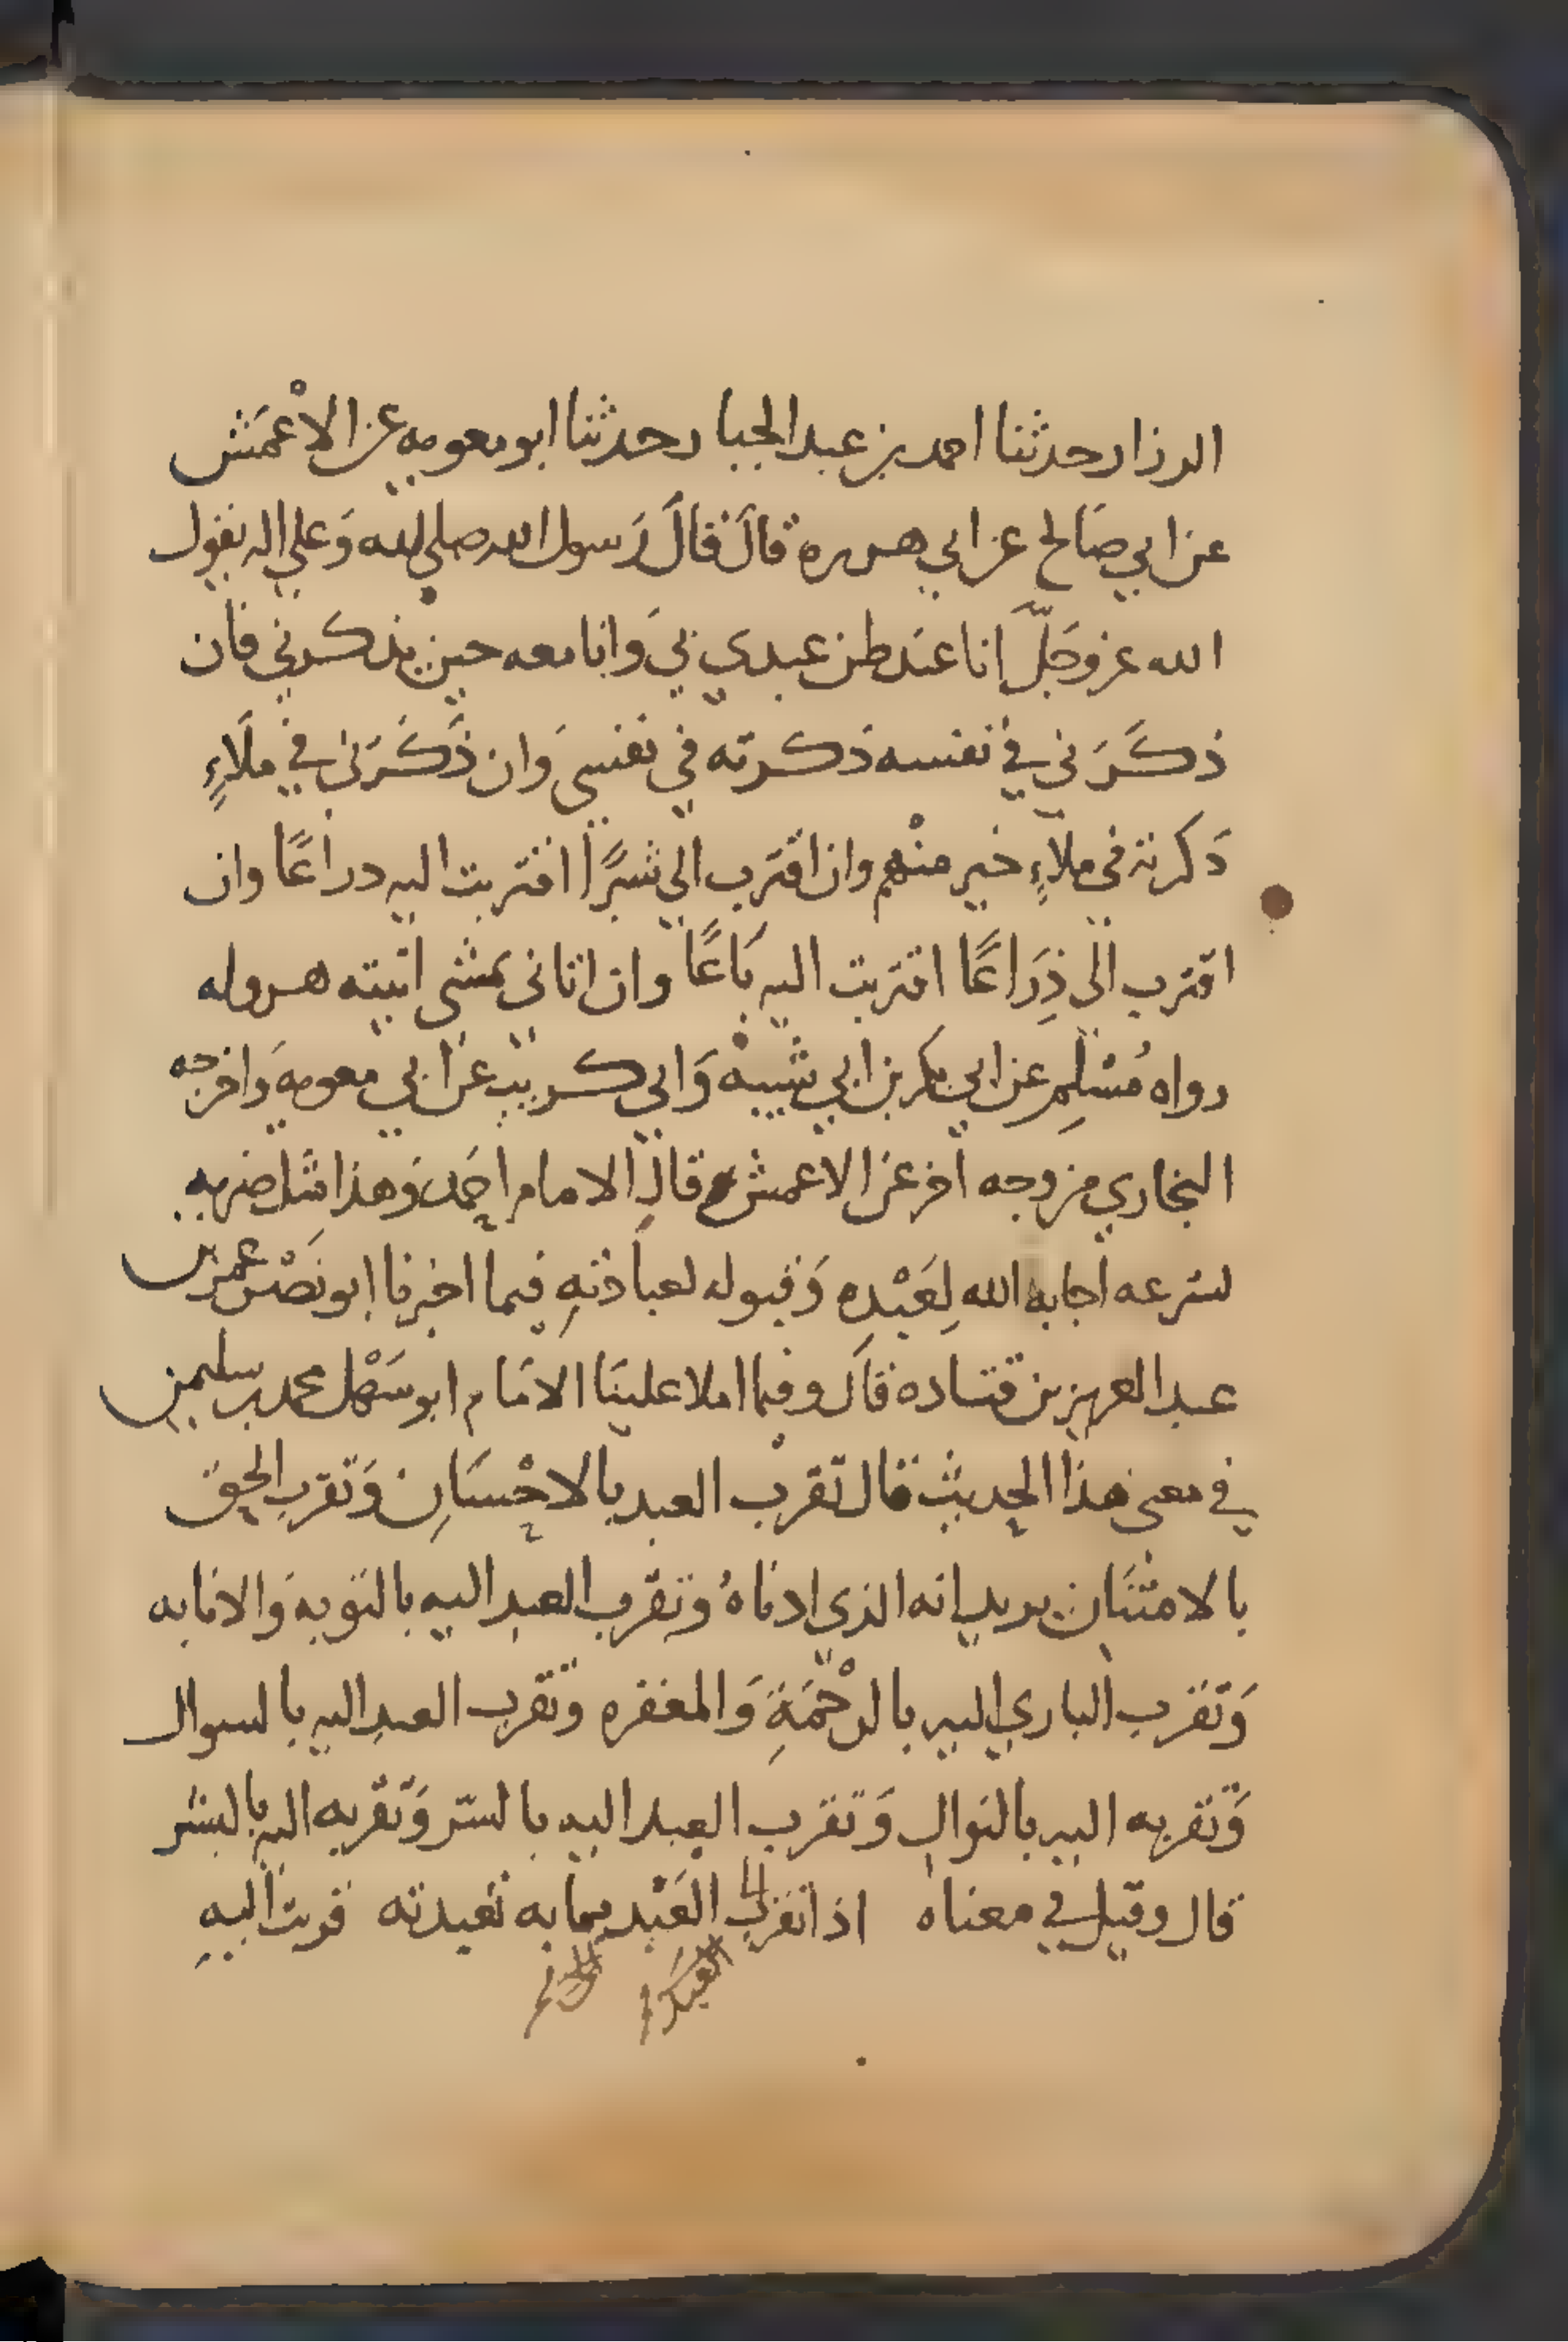 الرزاز حدثنا احمد بن عبد الجبار حدثنا ابو معويه عن الاعْمَش
عن ابي صَالح عن ابي هريره قالَ قالَ رَسول الله صلى الله وَعلى اله يقول
الله عز وَجَلَّ انا عند ظن عبدي بي وَانا معه حين يذكرني فان
ذكَرَني في نفسه ذكرته في نفسي وَان ذَكَرَني في ملَاءٍ
ذَكرته في ملاءٍ خير منْهم وان اقتَرب الي شبرًا اقتربت اليه دراعًا وان
اقترب الى ذِرَاعًا اقتربت اليه بَاعًا وان اتاني يمشي اتيته هروله
رواه مُسْلِم عن ابي بكر بن ابي شيبهْ وَابي كريب عن ابي معويه وَاخرجه
البخاري من وجه اخر عن الاعمش قال الامام احَمد وَهذا مثل ضربه
لسرعه اجابه الله لِعَبْدِه وَقبوله لعبادتهِ فيما اخبرنا ابو نَصْر عمر بن
عبد العزيز بن قتاده قالَ وفيما املا علينَا الامَام ابو سَهْل محمد بن سليمن
في معنى هذا الحديث قال تَقرب العبد بالاحْسَانِ وَتَقرب الحق
بالامتنَان يريد انه الذي ادناهُ وتقرب العبد اليه بالتوبه وَالانابه
وَتَقرب الباري اليه بالرحْمَةِ وَالمغفره وتقرب العبد اليه بالسوال
وَتقربه اليه بالنوال وَتقرب العبد اليه بالستر وَتَقربه اليه بالبشر
قال وقيل في معناه اذا تقرب الَيّ العَبْد بما به تعبدته قربت اليهِ